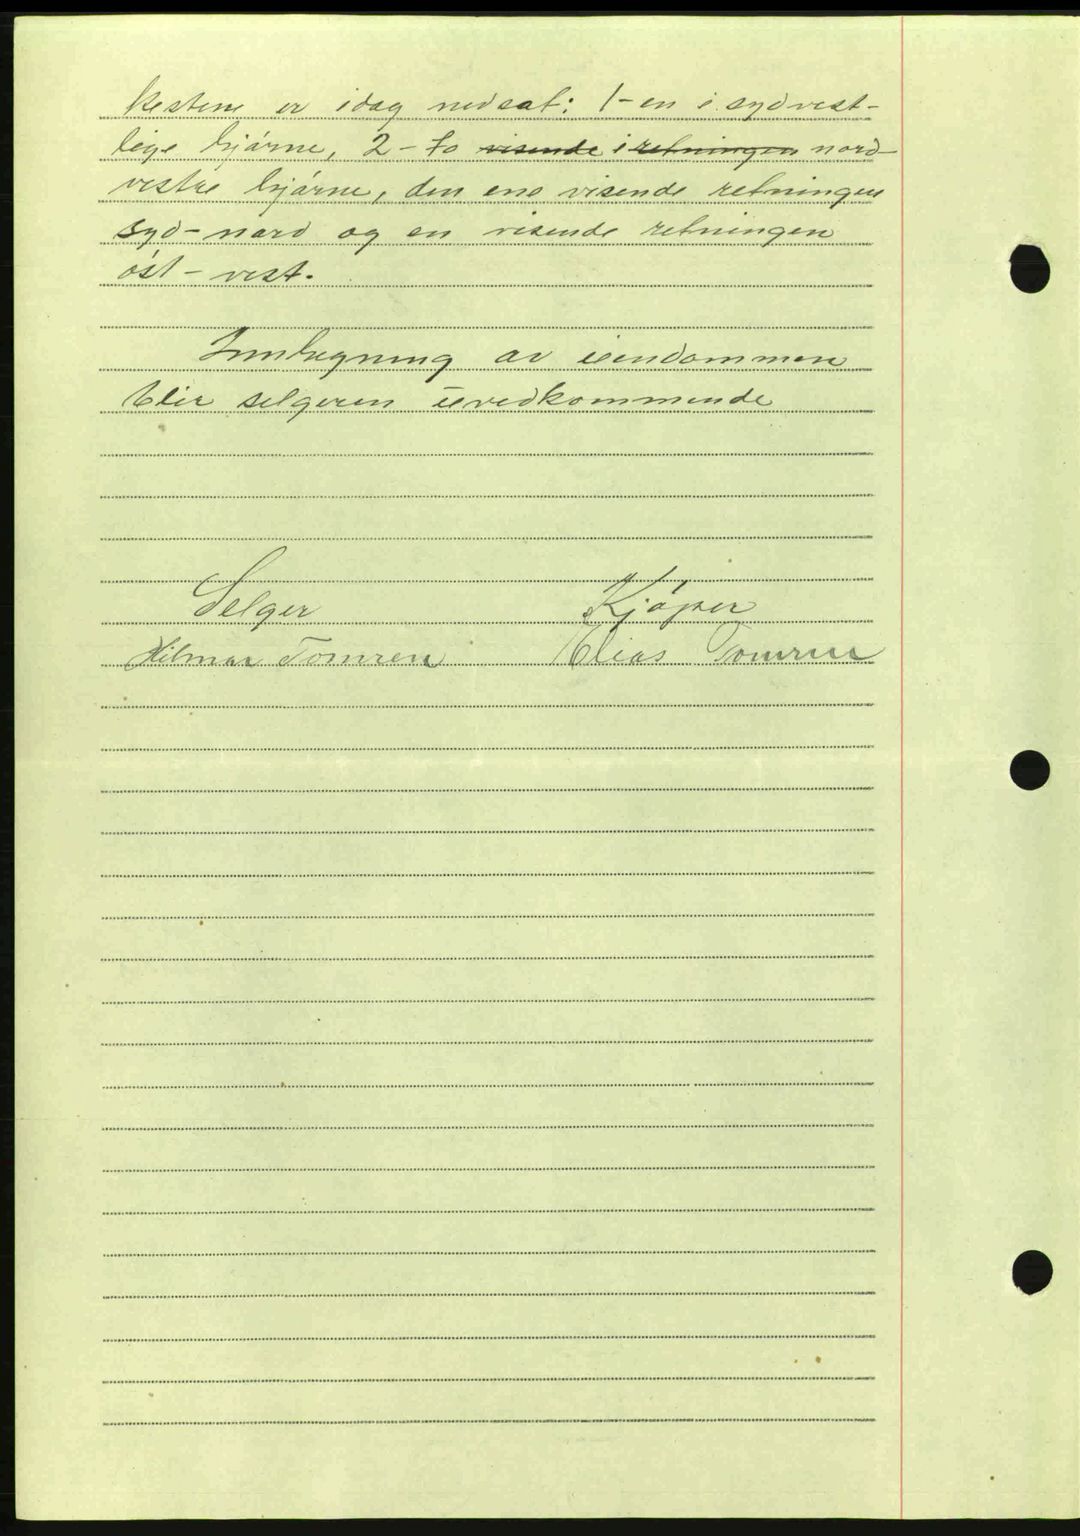 kestene er idag nedsat: 1-en i sydvest-
lige hjørne, 2-to visende i retningen nord
vestre hjørne, den ene visende retningen
syd-nord og en visende retningen
øst-vest.
Innhegning av eiendommen
blir selgeren uvedkommende
Selger Kjøper
Hilmar Tomren Elias Tomren